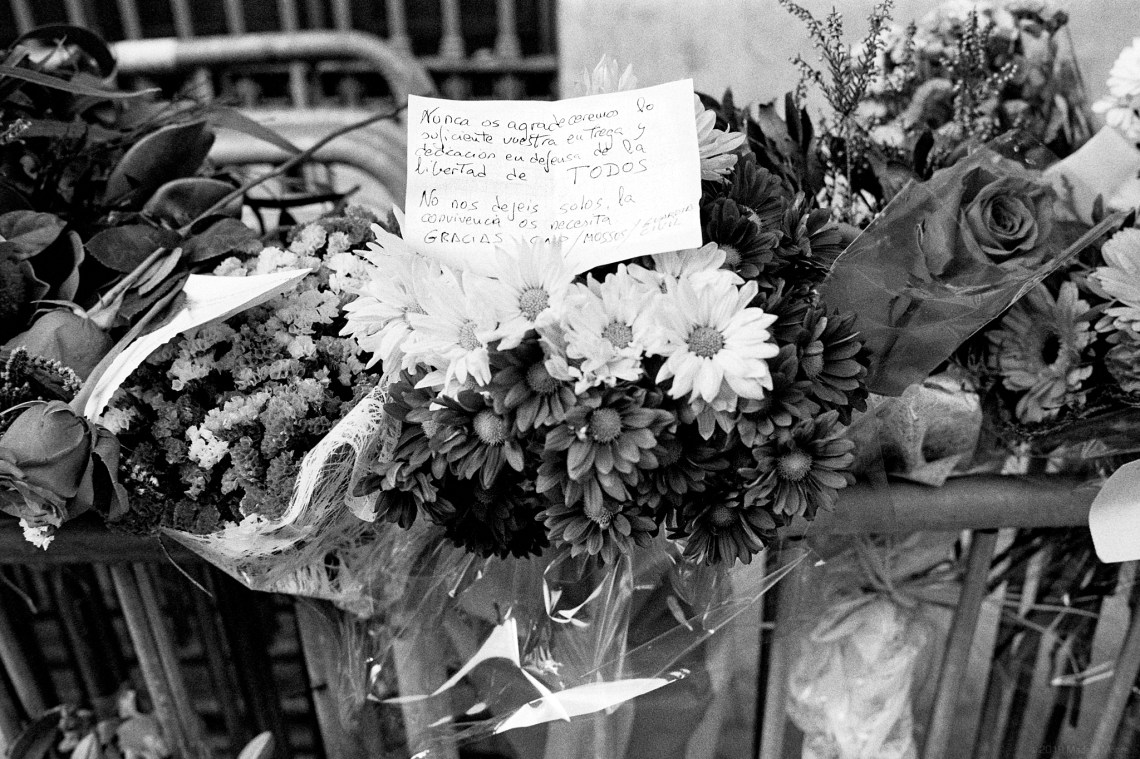 Nunca os agradeceremos lo
suficiente vuestra entrega y
dedicación en defensa de la
libertad de TODOS
No nos dejeis solos, la
convivencia os necesita
GRACIAS CNP/MOSSOS/